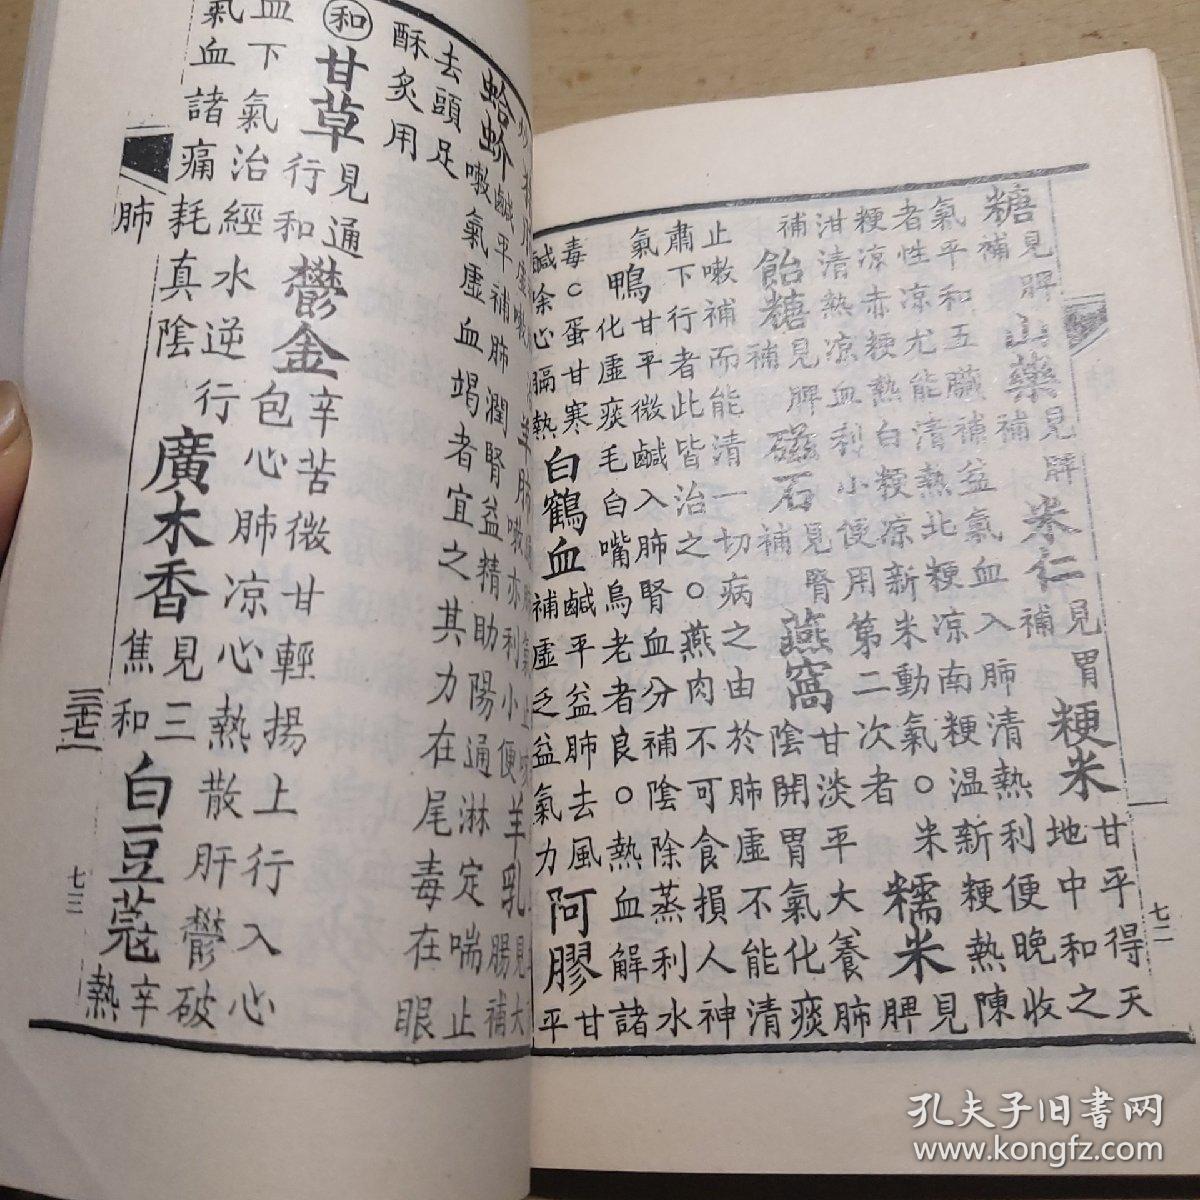 糖見脾補山藥見脾補仁見胃補粳米甘平得天
地中和之
氣平和五臟補益氣血入肺清熱利便晚收
者性凉尤能清熱北粳凉南粳温新粳熱陳
粳凉赤粳熱白粳凉新米動氣。米
泔清熱凉血利小便用第二次者糯米見脾
補飴糖見脾補磁石見腎補燕窩甘淡平大養肺
陰開胃氣化痰
止嗽補而能清一切病之由於肺虛不能清
肅下行者此皆治之。燕肉不可食損人神
氣鴨甘平微鹹入肺腎血分補陰除蒸利水
化虛痰毛白嘴烏老者良。熱血解諸
毒。蛋甘寒
鹹除心膈熱白鶴血鹹平益肺去風
補虛乏益氣力阿膠甘平
七二
蛤蚧鹹平補肺潤腎益精助陽通淋定喘止
嗽氣虛血竭者宜之其力在尾毒在眼
去頭足
酥炙用
和甘草見通行和鬱金辛苦微甘輕揚上行入心
包心肺凉心熱散肝鬱破
血下氣治經水逆行
氣血諸痛耗真陰廣木香見三焦和白豆蔻辛熱
肺
七三
孔夫子旧书网
www.kongfz.com